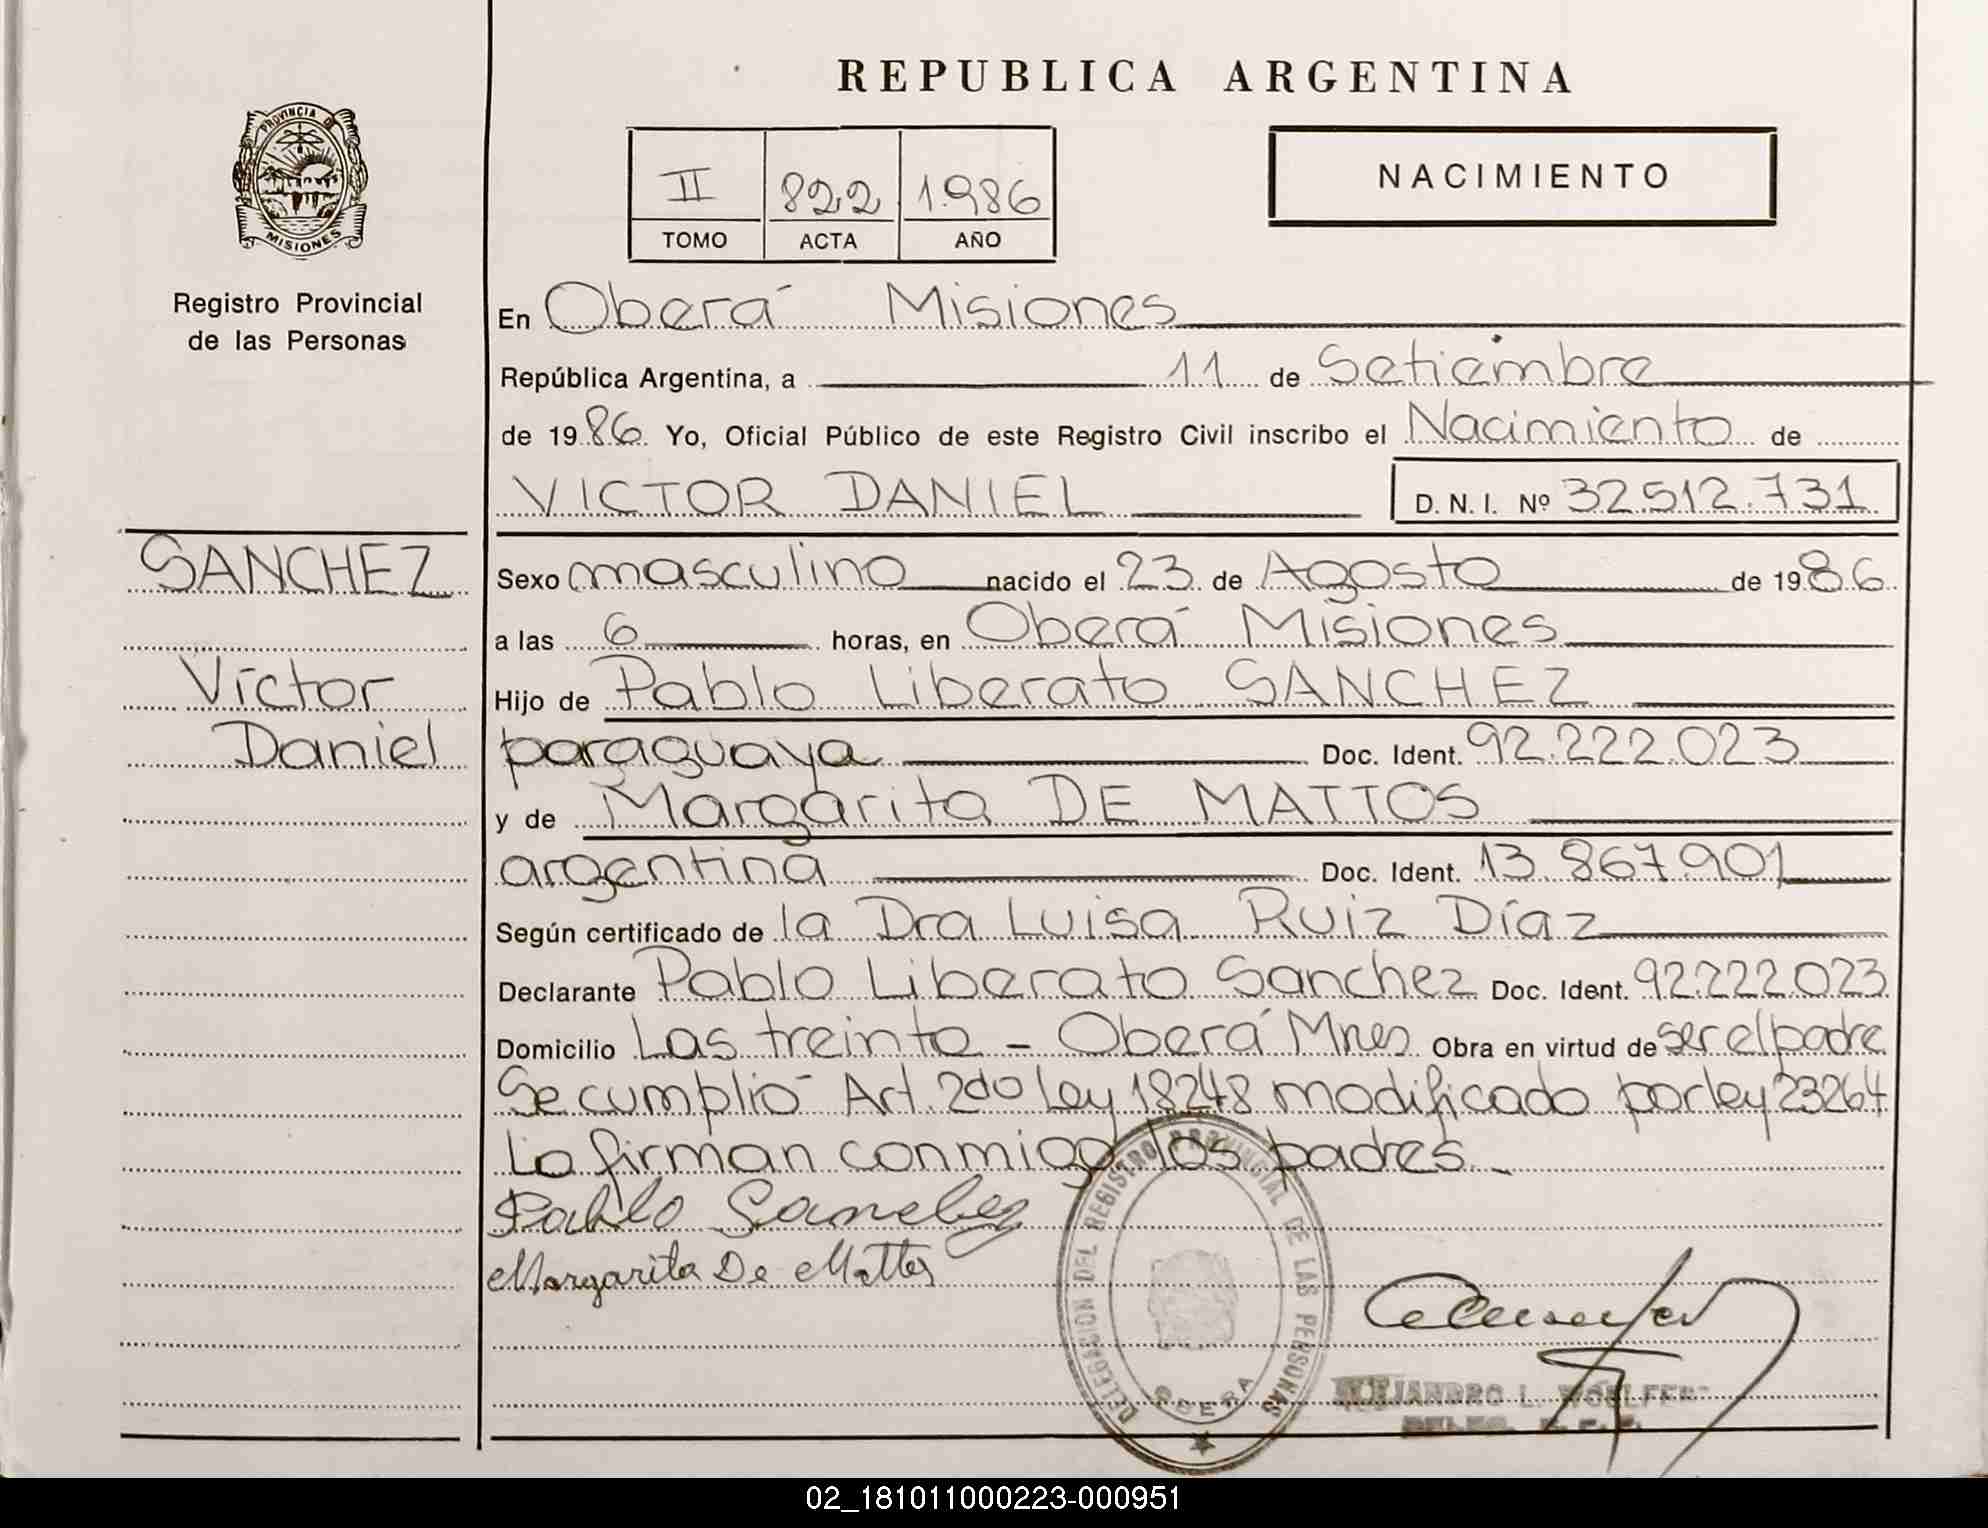 REPUBLICA ARGENTINA
PROVINCIA DE
MISIONES
Registro Provincial
de las Personas
II 822 1.986
TOMO ACTA AÑO
NACIMIENTO
En Oberá Misiones
República Argentina, a 11 de Setiembre
de 1986 Yo, Oficial Público de este Registro Civil inscribo el Nacimiento de
VICTOR DANIEL D. N. I. Nº 32.512.731
SANCHEZ
Víctor
Daniel
Sexo masculino nacido el 23 de Agosto de 1986
a las 6 horas, en Oberá Misiones
Hijo de Pablo Liberato SANCHEZ
paraguaya Doc. Ident. 92.222.023
y de Margarita DE MATTOS
argentina Doc. Ident. 13.867.901
Según certificado de la Dra Luisa Ruiz Díaz
Declarante Pablo Liberato Sanchez Doc. Ident. 92.222.023
Domicilio Las treinta - Oberá Mnes Obra en virtud de ser el padre
Se cumplió Art. 2do Ley 18248 modificado por ley 23264
Lo firman conmigo los padres.
Pablo Sanchez
Margarita De Mattos
DELEGACION DEL REGISTRO PROVINCIAL DE LAS PERSONAS
OBERA
ALEJANDRO L. WOELFERT
02_181011000223-000951